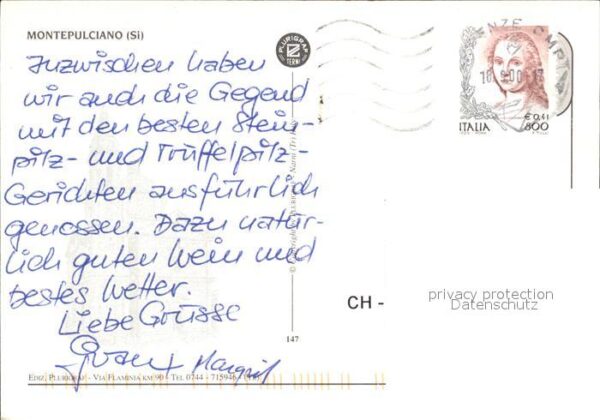 MONTEPULCIANO (Si)
PLURIGRAF
TERNI
Inzwischen haben
wir auch die Gegend
mit den besten Stein-
pilz- und Trüffelpilz-
Gerichten ausführlich
genossen. Dazu natür-
lich guten Wein und
bestes Wetter.
Liebe Grüsse
Margrit
147
EDIZ. PLURIGRAF - VIA FLAMINIA KM 90 - TEL 0744 - 715946
18.9.00
ITALIA
€ 0,41
800
CH -
privacy protection
Datenschutz